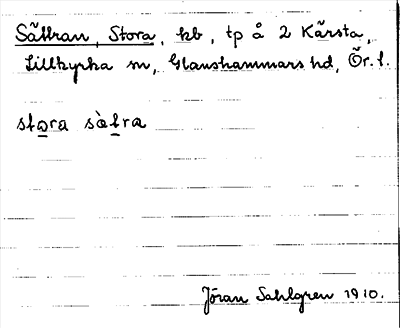 Sättran, Stora, kb, tp å 2 Kårsta,
Lillkyrka sn, Glanshammars hd, Ör. l.
stora sàtra
Jöran Sahlgren 1910.